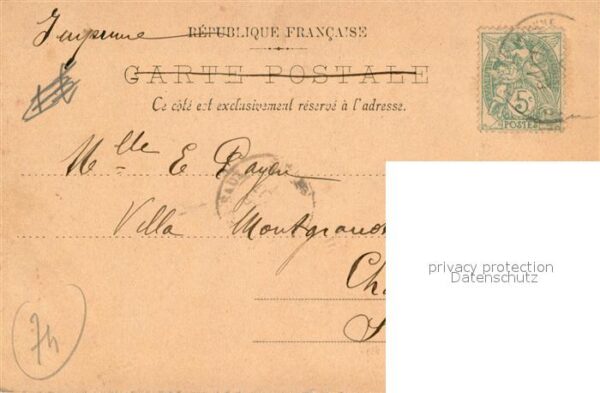 Imprimé
RÉPUBLIQUE FRANÇAISE
CARTE POSTALE
Ce côté est exclusivement réservé à l'adresse.
5c
POSTES
Mlle E Payen
Villa Montgrand
Ch
privacy protection
Datenschutz
74